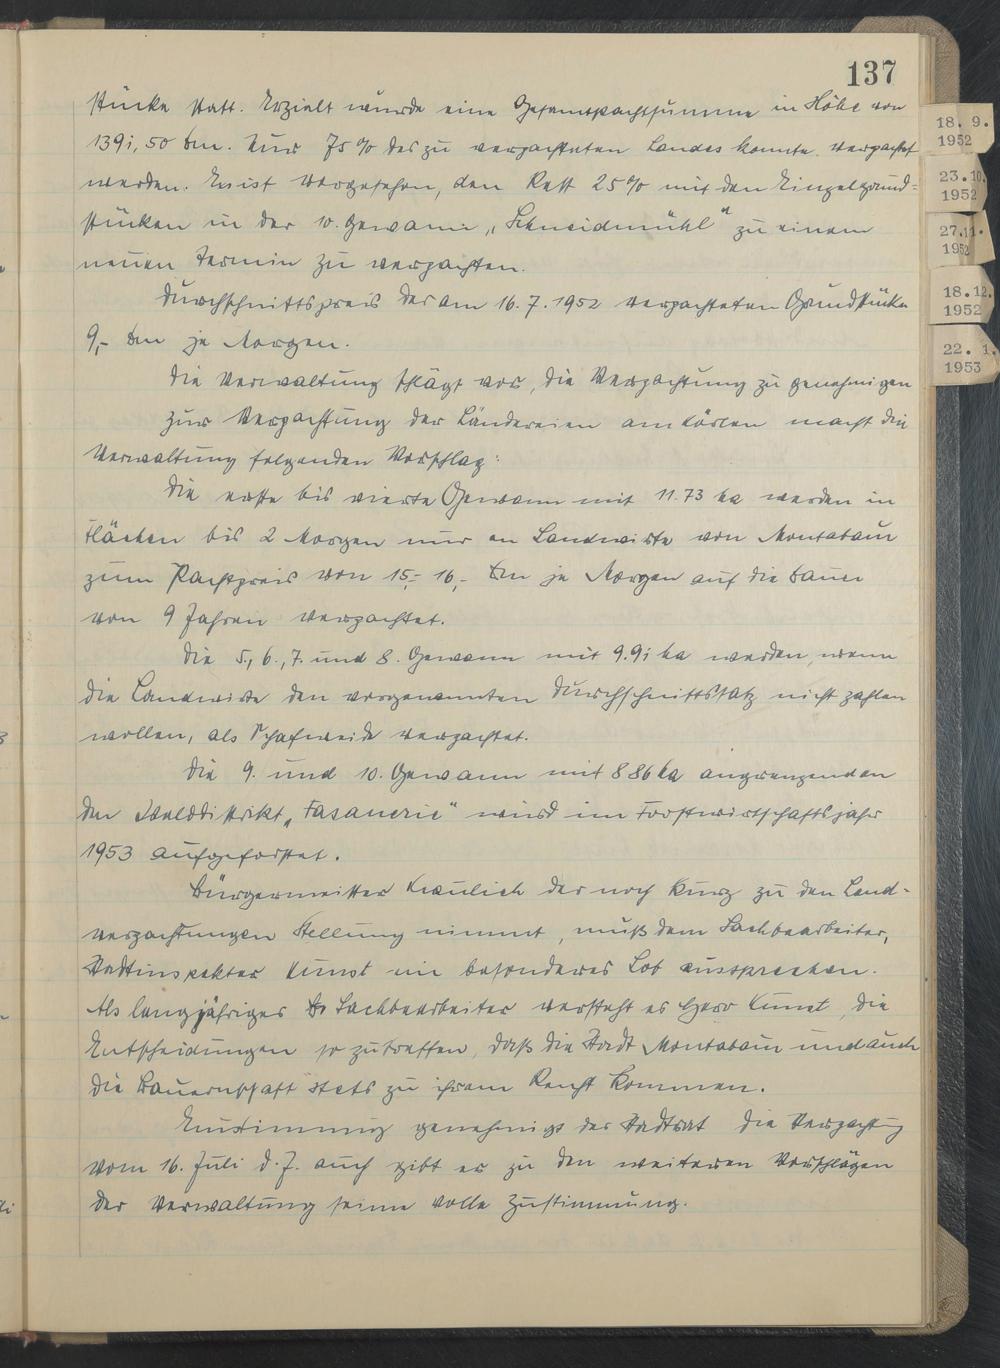 137
stücke statt. Erzielt wurde eine Gesamtpachtsumme in Höhe von
1391,50 Dm. Nur 75 % des zu verpachteten Landes konnte verpachtet
werden. Es ist vorgesehen, den Rest 25 % mit den Einzelgrund=
stücken in der 10. Gewann „Schneidmühl" zu einem
neuen Termin zu verpachten.
Durchschnittspreis der am 16.7.1952 verpachteten Grundstücke
9,- Dm je Morgen.
Die Verwaltung schlägt vor, die Verpachtung zu genehmigen
Zur Verpachtung der Ländereien am macht die
Verwaltung folgenden Vorschlag:
Die erste bis vierte Gewann mit 11.73 ha werden in
Flächen bis 2 Morgen nur an Landwirte von Montabaur
zum Pachtpreis von 15,- 16,- Dm je Morgen auf die Dauer
von 9 Jahren verpachtet.
Die 5., 6., 7. und 8. Gewann mit 9.91 ha werden, wenn
die Landwirte den vorgenannten Durchschnittssatz nicht zahlen
wollen, als Schafweide verpachtet.
Die 9. und 10. Gewann mit 8 86 ha angrenzend an
den Walddistrikt „Fasanerie" wird im Forstwirtschaftsjahr
1953 aufgeforstet.
Bürgermeister Kraulich der noch kurz zu den Land-
verpachtungen Stellung nimmt, muß dem Sachbearbeiter,
Stadtinspektor Kunst ein besonderes Lob aussprechen.
Als langjähriger Sachbearbeiter versteht es Herr Kunst, die
Entscheidungen so zutreffen, daß die Stadt Montabaur und auch
die Bauernschaft stets zu ihrem Recht kommen.
Einstimmig genehmigt der Stadtrat die Verpachtung
vom 16. Juli d.J. auch gibt er zu den weiteren Vorschlägen
der Verwaltung seine volle Zustimmung.
18. 9.
1952
23.10.
1952
27.11.
1952
18.12.
1952
22. 1.
1953